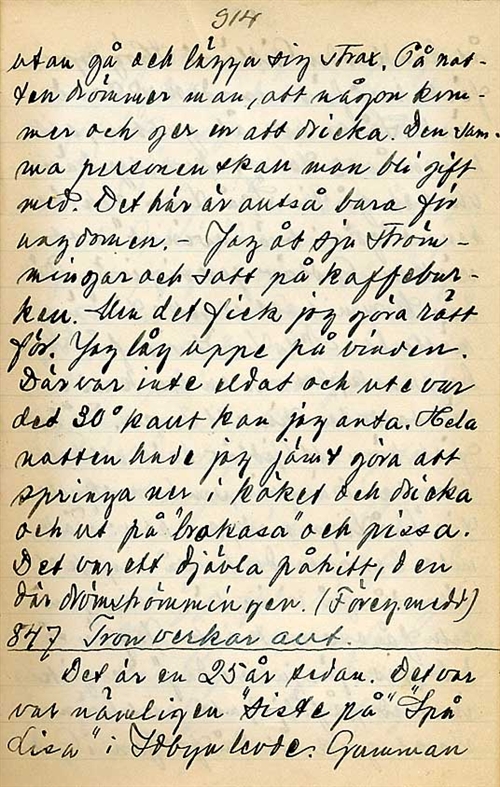 914
utan gå och lägga sig strax. På nat-
ten drömmer man, att någon kom-
mer och ger en att dricka. Den sam-
ma personen skall man bli gift
med. Det här är antså bara för
ungdomen. - Jag åt sju ström-
mingar och satt på kaffebur-
ken. Men det fick jag göra rätt
för. Jag låg uppe på vinden.
Där var inte eldat och ute var
det 30° kallt kan jag anta. Hela
natten hade jag jämt göra att
springa ner i köket och dricka
och ut på "brokasa" och pissa.
Det var ett djävla påhitt, den
där drömströmmingen. (Föreg. medd)
847 Tron verkar allt.
Det är en 25 år sedan. Det var
var nämligen "siste på" "Spå
Lisa" i Idbyn levde. Gumman